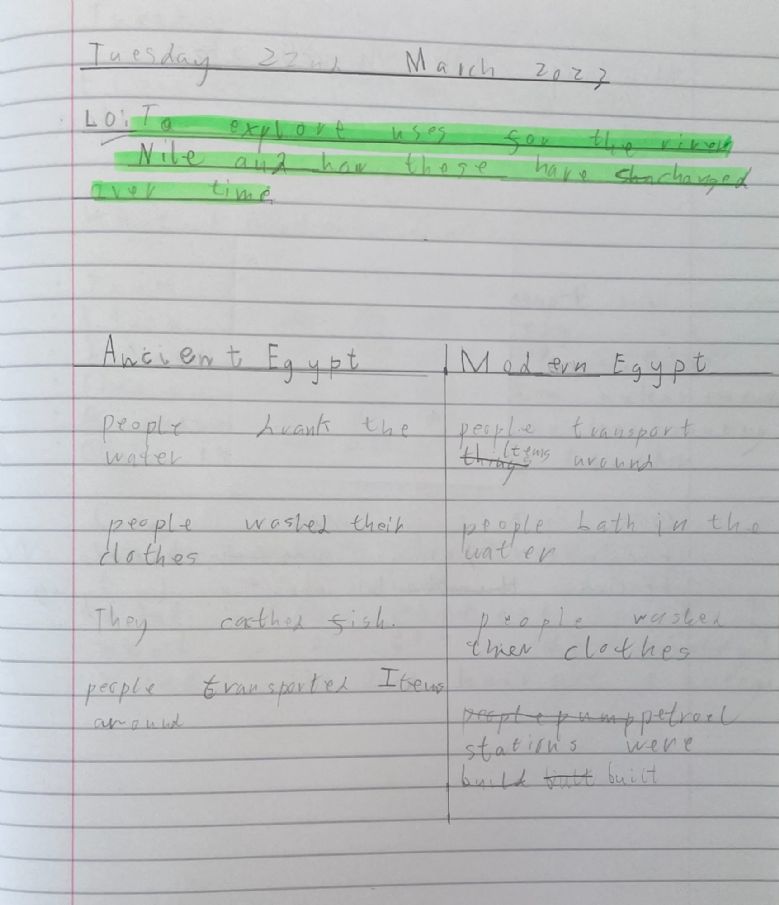 Tuesday 22nd March 2022
LO: To explore uses for the river
Nile and how these have changed
over time
Ancient Egypt
people drank the
water
people washed their
clothes
They cathed fish.
people transported Items
around
Modern Egypt
people transport
things Items around
people bath in the
water
people washed
thier clothes
people pump petroel
stations were
build butt built